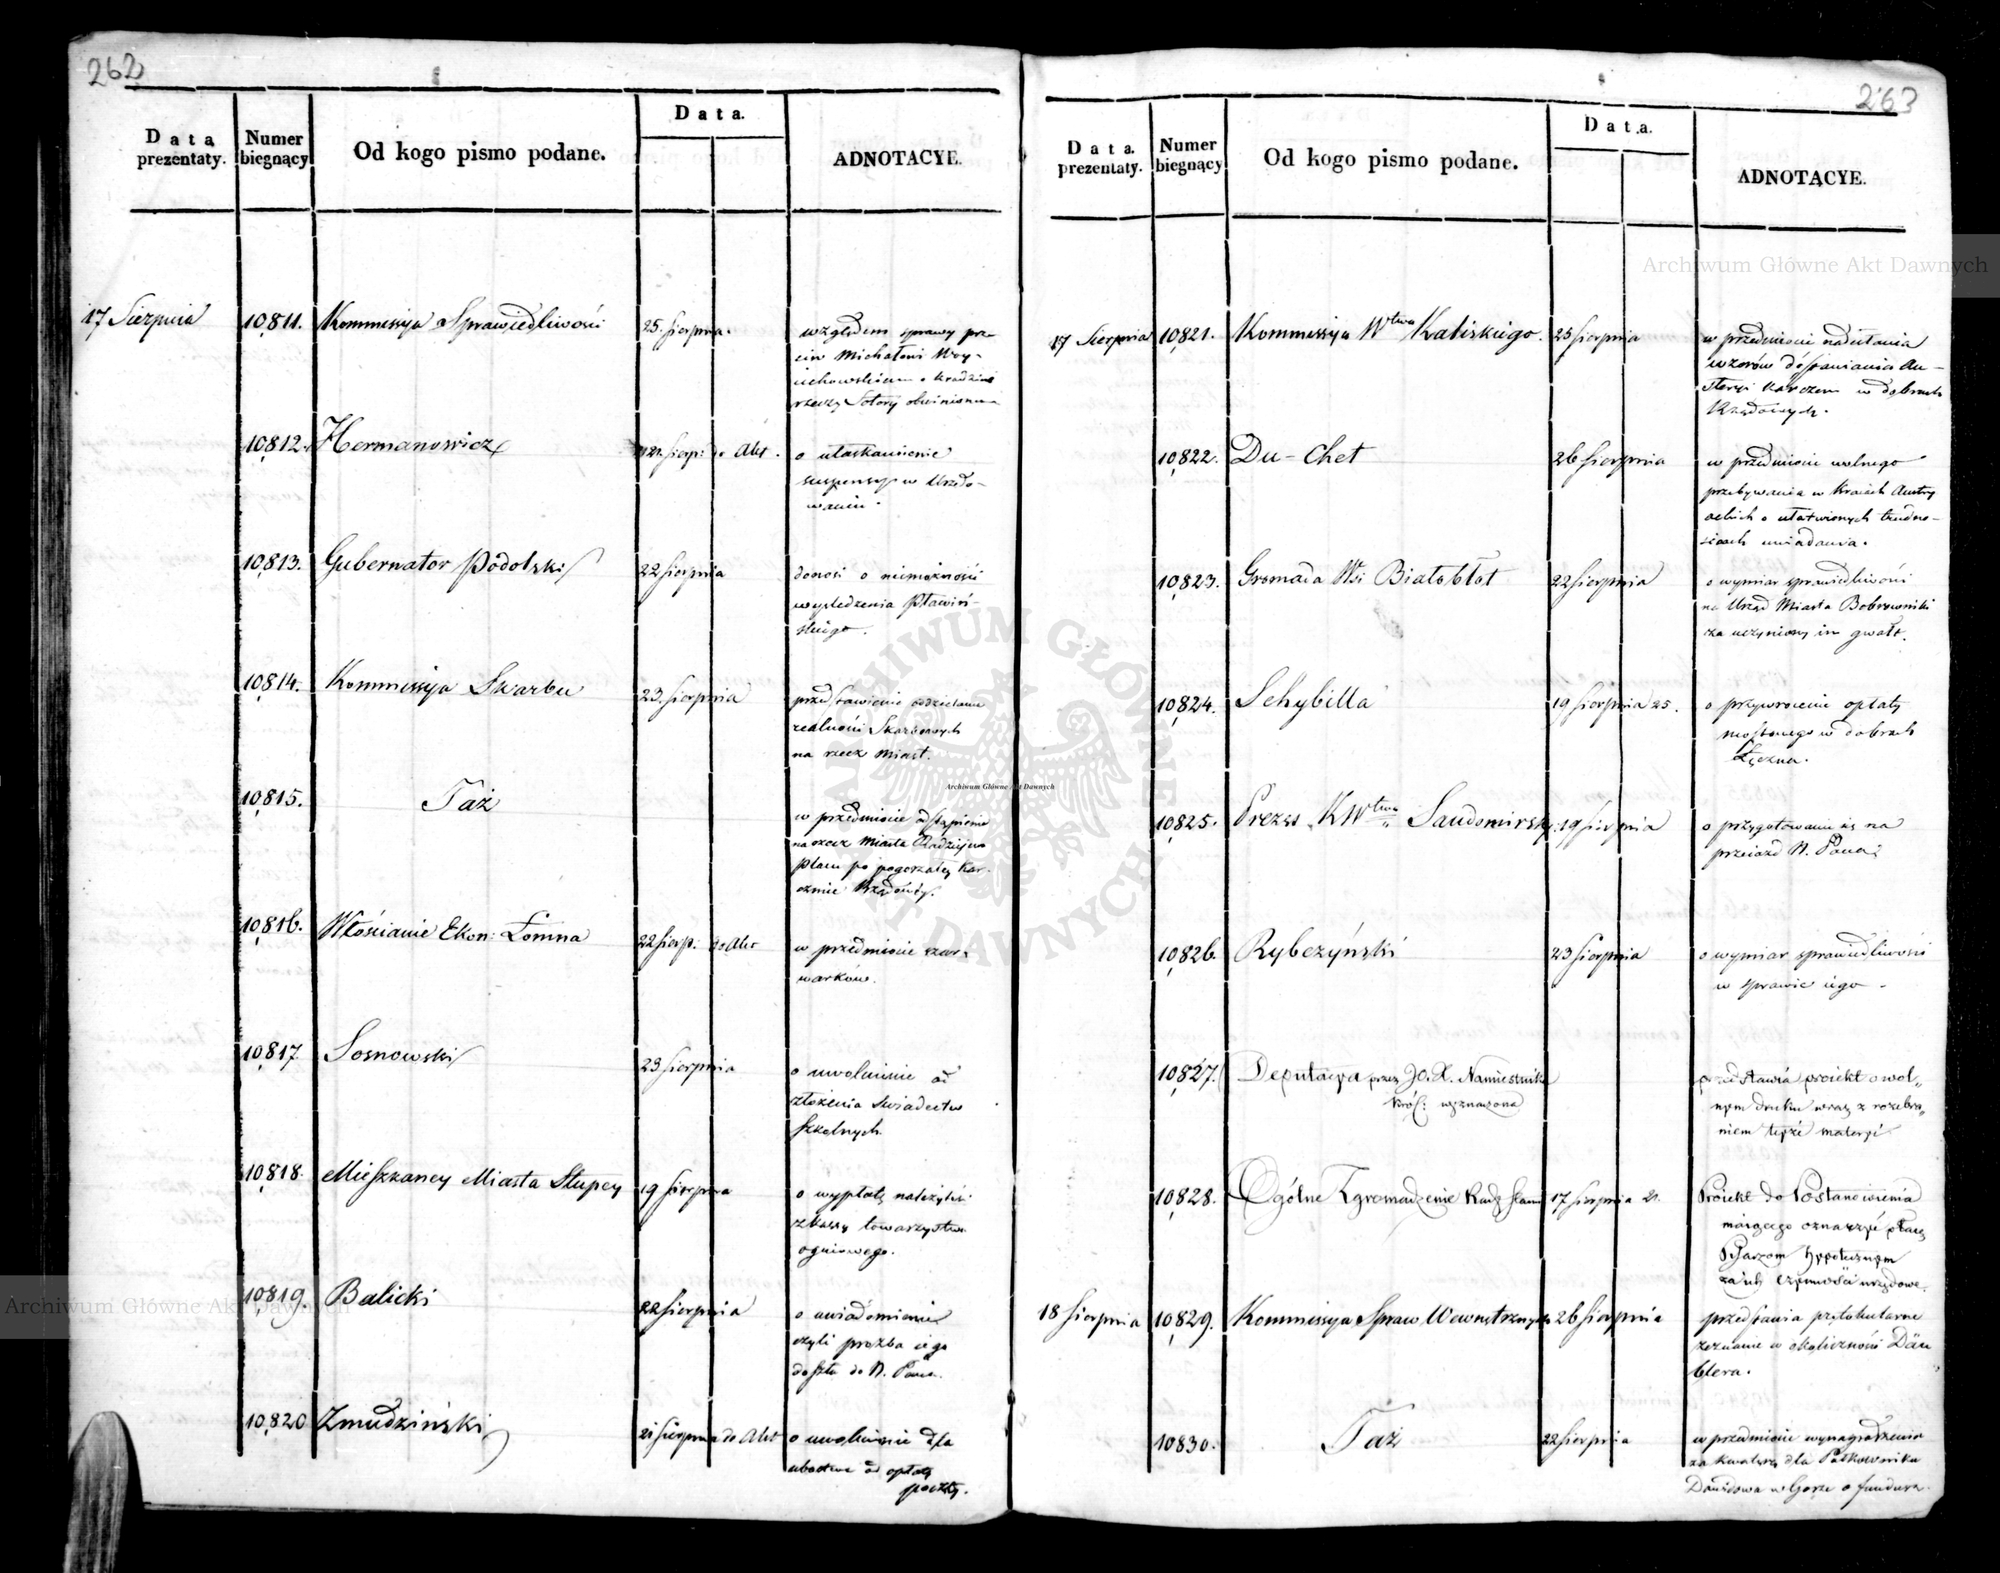 262
Data prezentaty.
Numer biegnący
Od kogo pismo podane.
Data.
ADNOTACYE.
17 Sierpnia 10,811. Kommissya Sprawiedliwości 25. Sierpnia.
względem sprawy prze-
ciw Michałowi Woy-
ciechowskiemu o kradzież
rzeczy
10,812. Hermanowicz 12. Sierp: do Akt.
o ułaskawienie
suspensy w Urzędo-
waniu.
10,813. Gubernator Podolski 22 Sierpnia
donosi o niemożności
wyśledzenia Pławiń-
skiego.
10,814. Kommissya Skarbu 23. Sierpnia
przedstawienie oddzielenia
realności Skarbowych
na rzecz Miast.
10,815. Taż
w przedmiocie odstąpienia
na rzecz Miasta Radziejewa
Placu po pogorzałey Kar-
czmie Rządowéy.
10,816. Włościanie Ekon: Łomna 22 Sierp: do Akt
w przedmiocie szar-
warków.
10,817. Sosnowski 23 Sierpnia
o uwolnienie od
złożenia świadectw
szkolnych.
10,818. Mieszkancy Miasta Słupcy 19 Sierpnia
o wypłatę należytości
z kassy towarzystwa
ogniowego.
10,819. Balicki 22 Sierpnia
o uwiadomienie
czyli proźba iego
doszła do N. Pana.
10,820 Zmudziński 21 Sierpnia do Akt
o uwolnienie dla
ubostwa od opłaty
poczty.
263
Data prezentaty.
Numer biegnący
Od kogo pismo podane.
Data.
ADNOTACYE.
17 Sierpnia 10,821. Kommissya Wtwa Kaliskiego. 25 Sierpnia
w przedmiocie nadesłania
wzorów do stawiania Au-
steryi Karczem w dobrach
Rządowych.
10,822. Du-Chet 26 Sierpnia
w przedmiocie wolnego
przebywania w Kraiach Austry
ackich o ułatwionych trudno-
ściach
10,823. Gromada Wsi Białobłot 22 Sierpnia
o wymiar sprawiedliwości
na Urząd Miasta Bobrowniki
za uczyniony im gwałt.
10,824. Schybilla 19 Sierpnia 25.
o przywrócenie opłaty
mostowego w dobrach
Łęczna.
10,825. Prezes KWtwa Sandomirsk: 19 Sierpnia
o przygotowaniu się na
przeiazd N. Pana.
10,826. Rybczyński 23 Sierpnia
o wymiar sprawiedliwości
w sprawie iego.
10,827. Deputacya przez JO. X. Namiestnika
Król: wyznaczona
przedstawia proiekt o wol-
nym druku wraz z rozebra-
niem teyże materyi.
10,828. Ogólne Zgromadzenie Rady Stanu 17 Sierpnia 21.
Proiekt do Postanowienia
maiącego oznaczyć płacę
Pisarzom hypotecznym
za ich czynności urzędowe.
18 Sierpnia 10,829. Kommissya Spraw Wewnętrznych 26 Sierpnia
przedstawia protokularne
zeznanie w okoliczności Däu
blera.
10830. Taż 22 Sierpnia
w przedmiocie wynagrodzenia
za kwaterę dla Połkownika
w Gorze o fundusz.
Archiwum Główne Akt Dawnych
ARCHIWUM GŁÓWNE AKT DAWNYCH
Archiwum Główne Akt Dawnych
Archiwum Główne Akt Dawnych